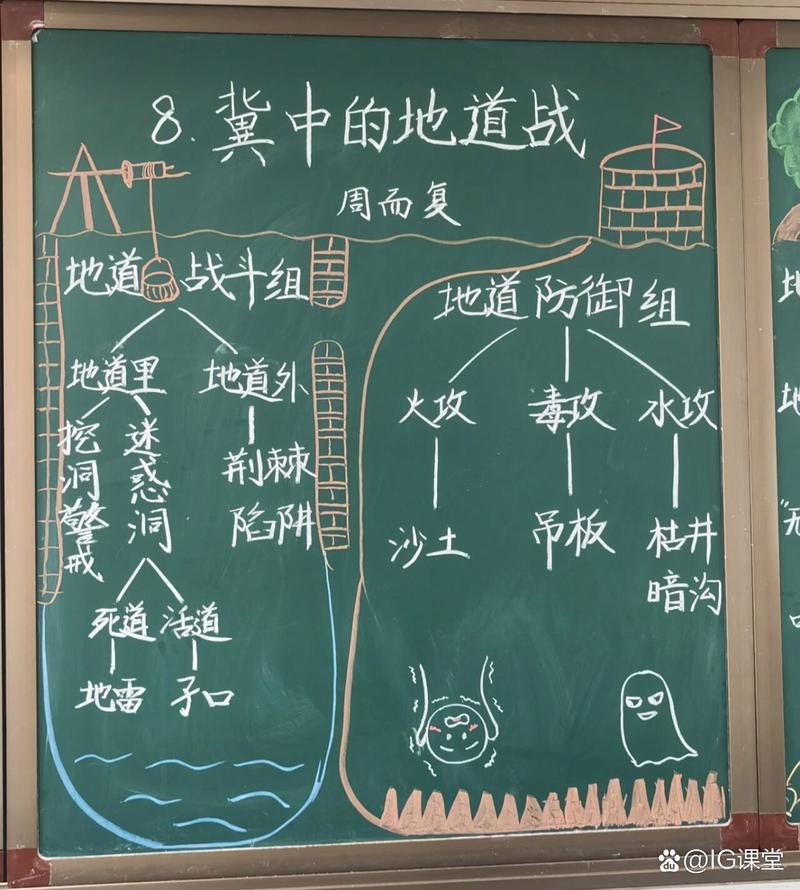 8. 冀中的地道战
周而复
地道战斗组
地道里
地道外
挖洞警戒
迷惑洞
荆棘
陷阱
死道
活道
地雷
孑口
地道防御组
火攻
毒攻
水攻
沙土
吊板
枯井
暗沟
地
地
口
Baidu @IG课堂